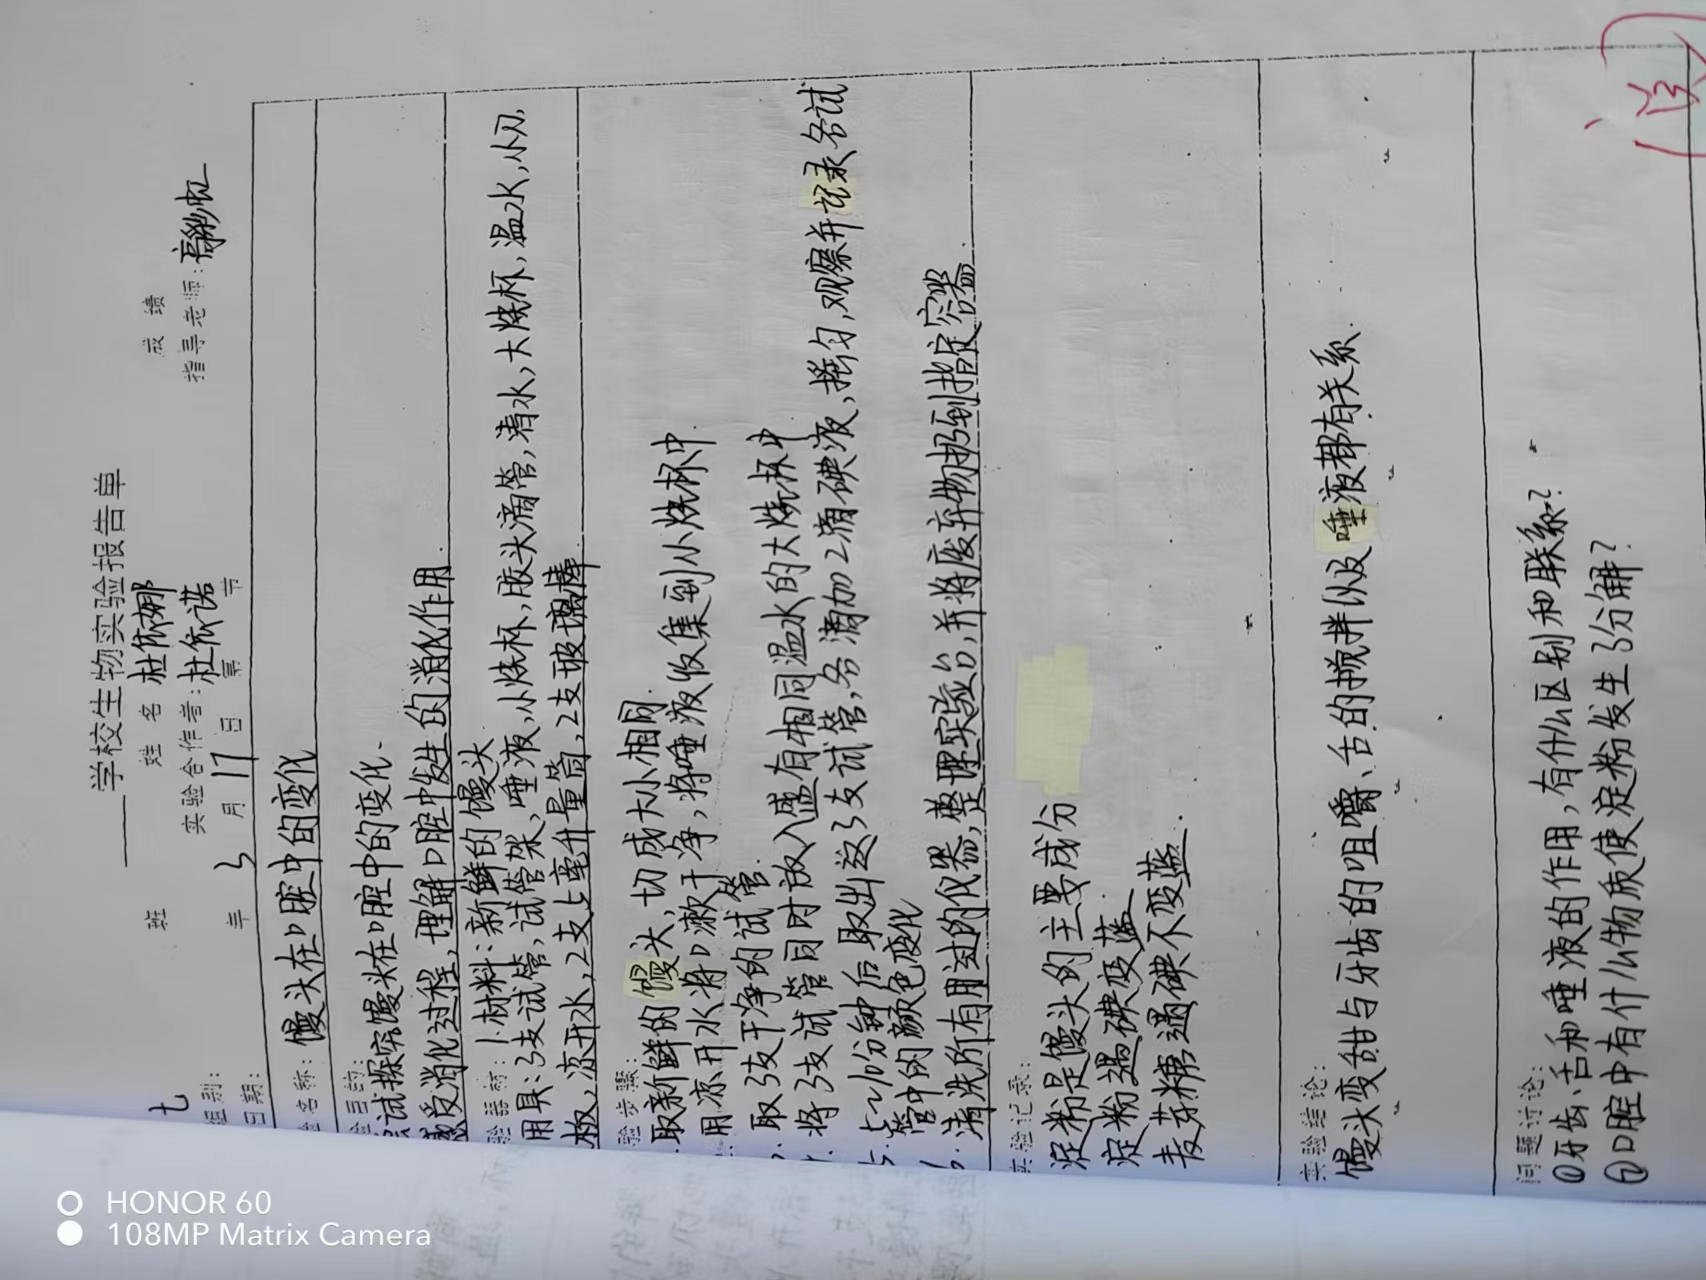 学校生物实验报告单
七 班 姓名 杜依娜 成绩
组别: 实验合作者: 杜依诺 指导老师:
日期: 年 3 月 17 日 第 节
名称: 馒头在口腔中的变化
目的:
试探究馒头在口腔中的变化.
感受消化过程,理解口腔中发生的消化作用.
器材: 1.材料:新鲜的馒头
用具:3支试管,试管架,唾液,小烧杯,胶头滴管,清水,大烧杯,温水,小刀,
板,凉开水,2支2毫升量筒,2支玻璃棒
验步骤:
取新鲜的馒头,切成大小相同.
用凉开水将口漱干净,将唾液收集到小烧杯中.
取3支干净的试管
将3支试管同时放入盛有相同温水的大烧杯中
5. 5~10分钟后取出这3支试管,各滴加2滴碘液,摇匀,观察并记录各试
管中的颜色变化
6.清洗所有用过的仪器,整理实验台,并将废弃物扔到指定容器.
实验记录:
淀粉是馒头的主要成分
淀粉遇碘变蓝
麦芽糖遇碘不变蓝.
实验结论:
馒头变甜与牙齿的咀嚼、舌的搅拌以及唾液都有关系.
问题讨论:
①牙齿、舌和唾液的作用,有什么区别和联系?
②口腔中有什么物质使淀粉发生了分解?
HONOR 60
108MP Matrix Camera